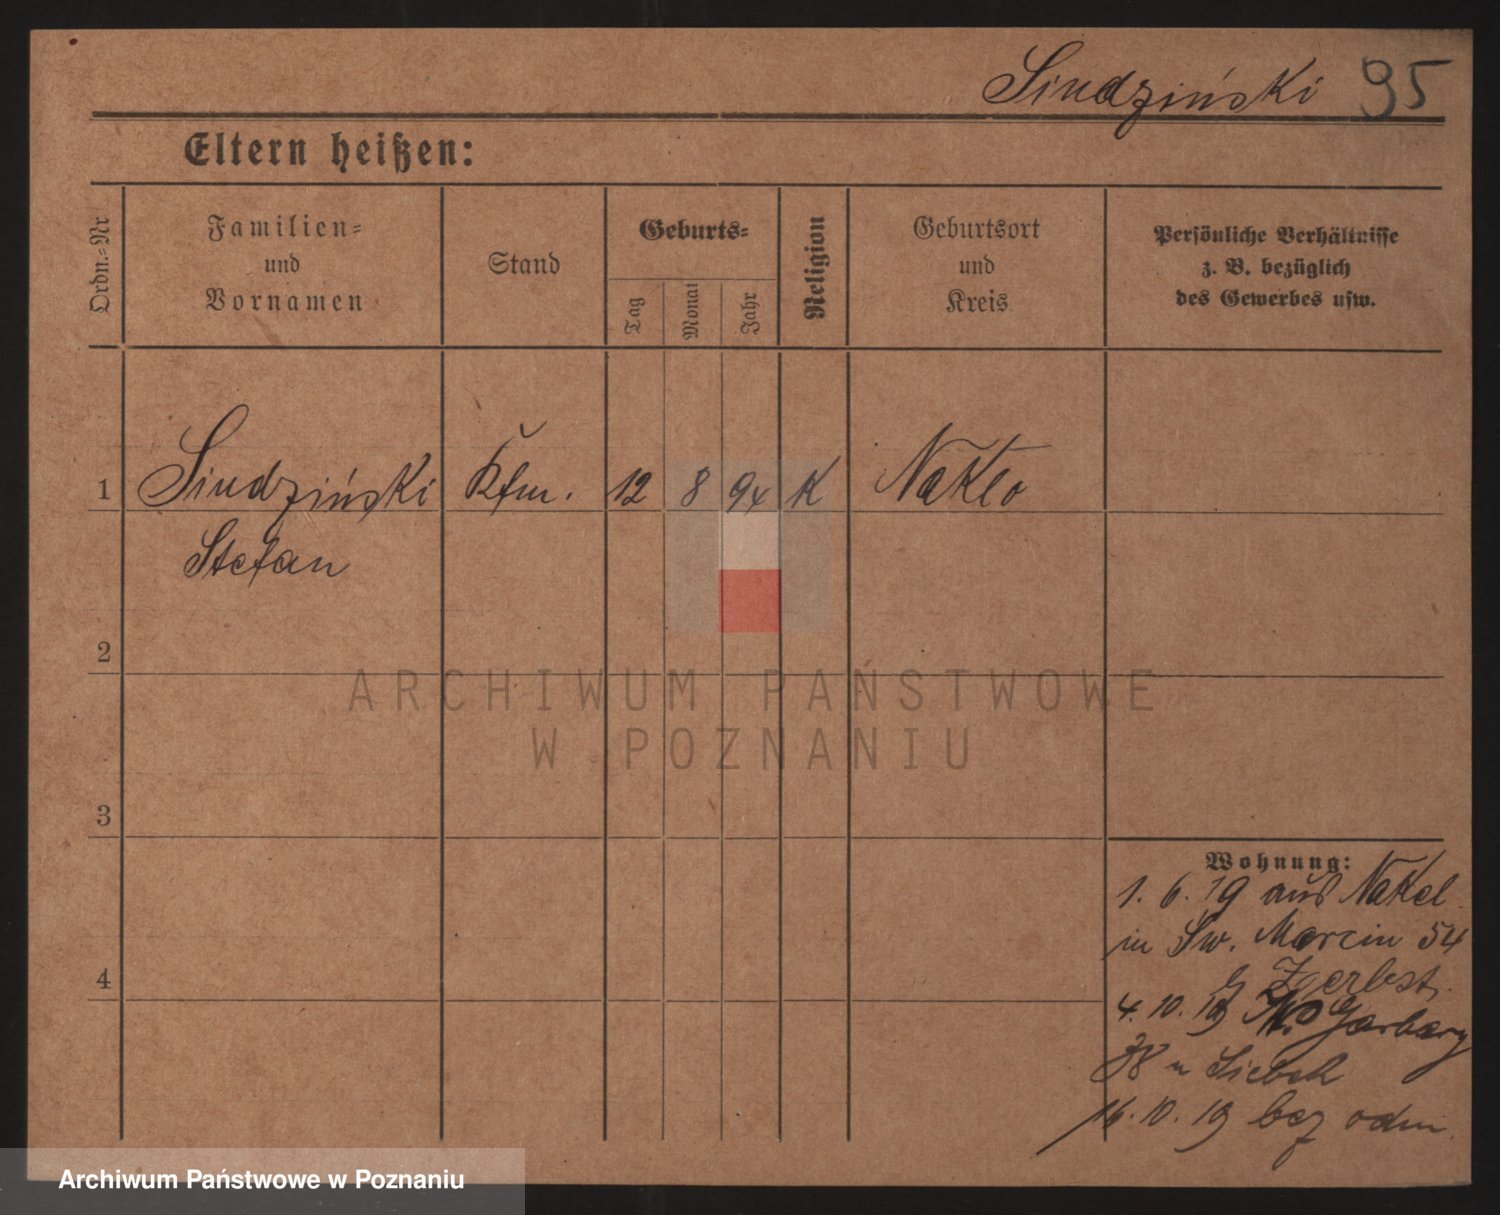 Sindziński 95
Eltern heißen:
Ordn.-Nr
Familien-
und
Vornamen
Stand
Geburts-
Tag
Monat
Jahr
Religion
Geburtsort
und
Kreis
Persönliche Verhältnisse
z. B. bezüglich
des Gewerbes usw.
1 Sindziński Kfm. 12 8 94 K Nakło
Stefan
2
3
4
Wohnung:
1. 6. 19 aus Nakel
in Św. Marcin 54
b
4. 10. 19 W. Garbary
38 u
16. 10. 19 bez odm.
ARCHIWUM PAŃSTWOWE
W POZNANIU
Archiwum Państwowe w Poznaniu